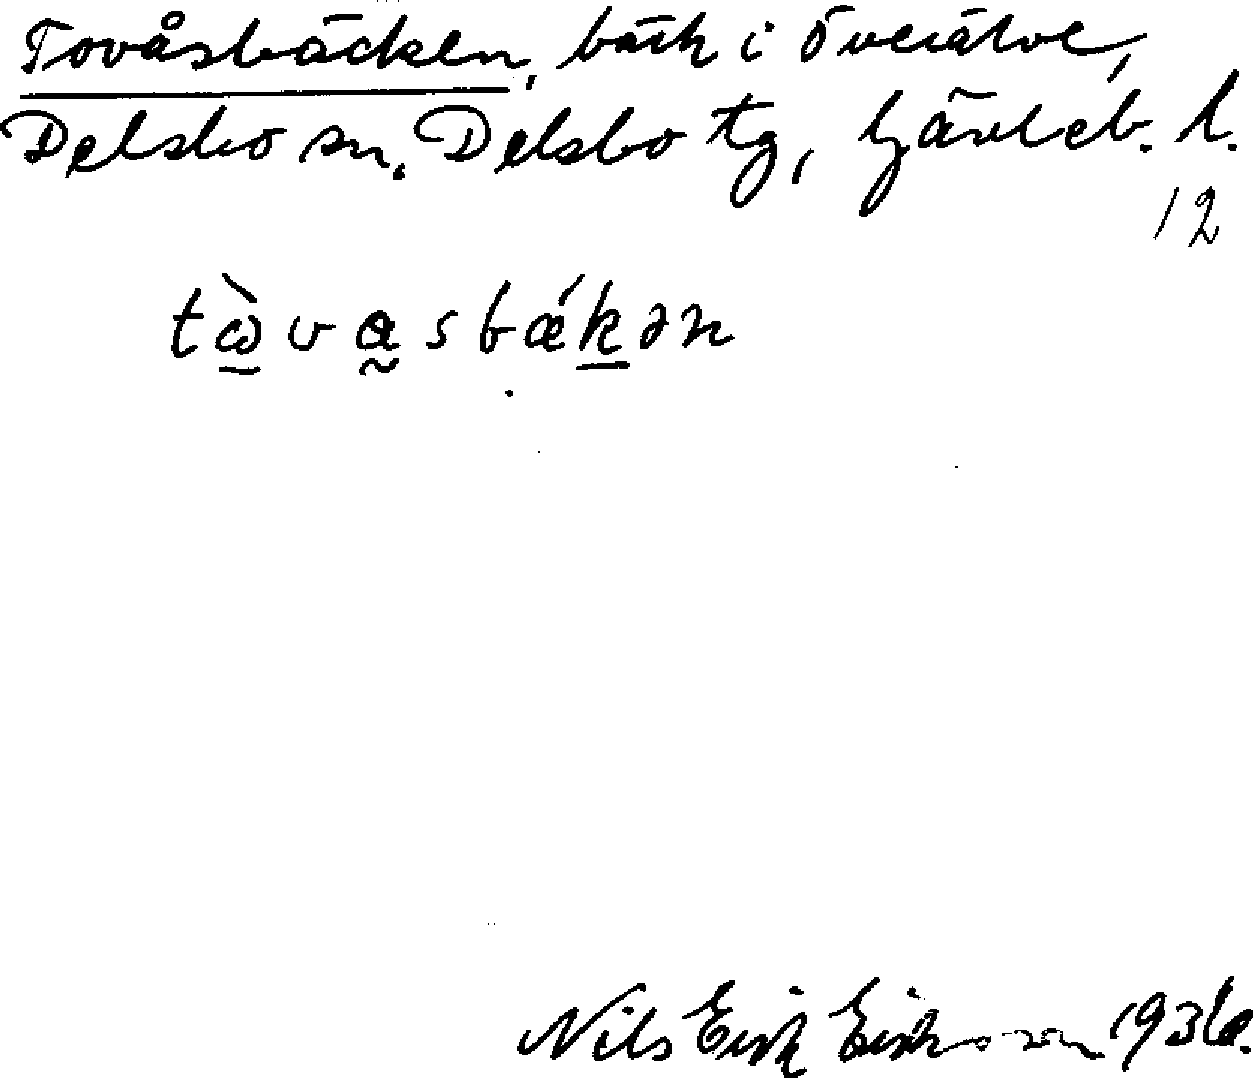 Tovåsbäcken, bäck i Överälve,
Delsbo sn. Delsbo tg, Gävleb. l.
12
tὼvasbǽkən
Nils Erik Eriksson 1936.